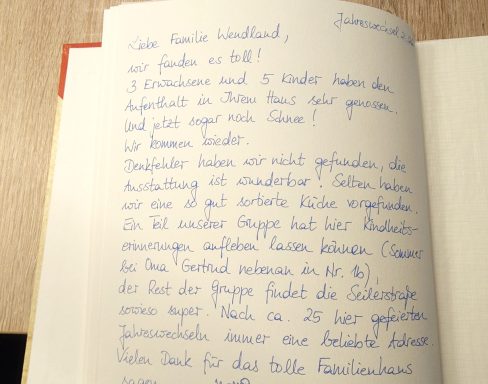 Jahreswechsel
Liebe Familie Wendland,
wir fanden es toll!
3 Erwachsene und 5 Kinder haben den
Aufenthalt in Ihrem Haus sehr genossen.
Und jetzt sogar noch Schnee!
Wir kommen wieder.
Denkfehler haben wir nicht gefunden, die
Ausstattung ist wunderbar! Selten haben
wir eine so gut sortierte Küche vorgefunden.
Ein Teil unserer Gruppe hat hier Kindheits-
erinnerungen aufleben lassen können (Sommer
bei Oma Gertrud nebenan in Nr. 1b),
der Rest der Gruppe findet die Seilerstraße
sowieso super. Nach ca. 25 hier gefeierten
Jahreswechseln immer eine beliebte Adresse.
Vielen Dank für das tolle Familienhaus
sagen